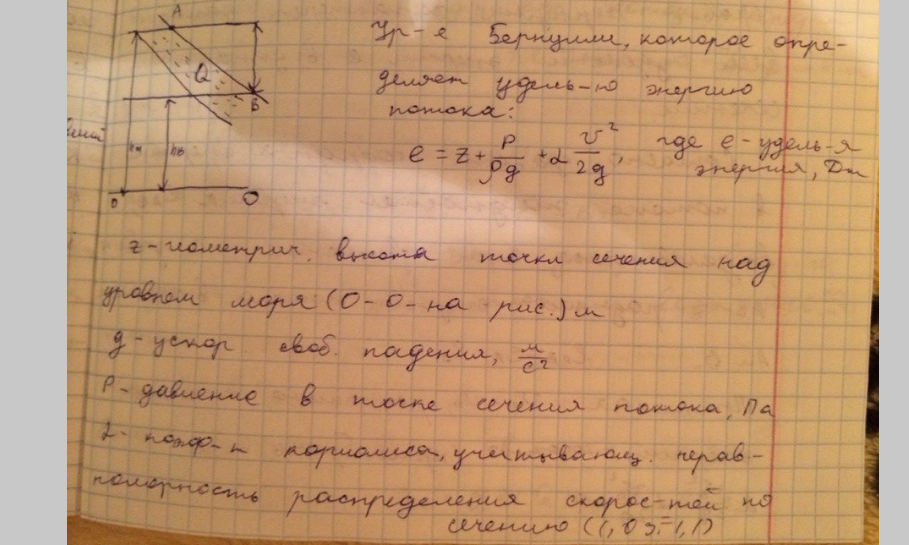 A
Q
B
hA
hB
O
O
Ур-е Бернулли, которое опре-
деляет удель-ю энергию
потока:
e = z + P/ρg + α v²/2g, где e - удель-я
энергия, Дж
z - геометрич. высота точки сечения над
уровнем моря (O-O- на рис.) м
g - ускор своб. падения, м/с²
P - давление в точке сечения потока, Па
α - коэф-т кориолиса, учитывающ. нерав-
номерность распределения скорос-тей по
сечению (1,03-1,1)